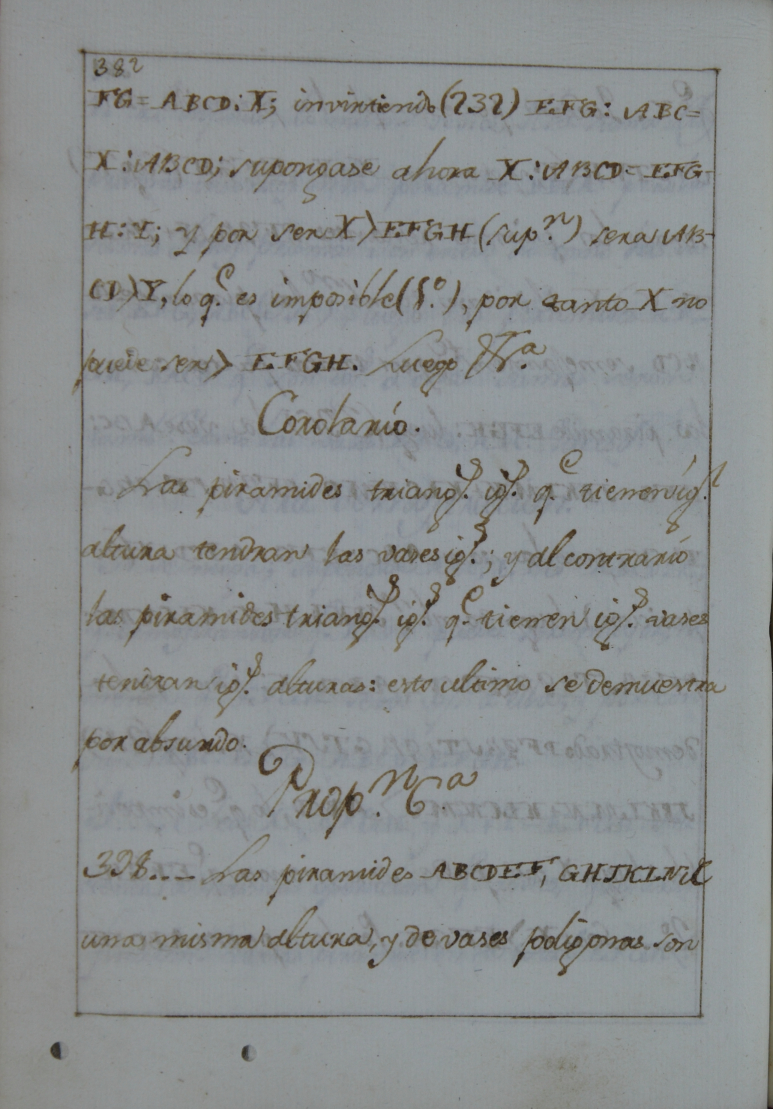 382
FG= ABCD: X; invirtiendo (232) EFG: ABC=
X: ABCD; supongase ahora X: ABCD= EFG-
H: Y; y por ser X > EFGH (sup.ⁿ) sera AB-
CD > Y, lo q.e es imposible (§.º), por tanto X no
puede ser > EFGH. Luego &.ª
Corolario.
Las piramides triang.s ig.s q.e tienen ig.l
altura tendran las vases ig.s; y al contrario
las piramides triang.s ig.s q.e tienen ig.s vases
tendran ig.s alturas: esto ultimo se demuestra
por absurdo.
Prop.ⁿ 6.ª
328... Las piramides ABCDEF, GHIKLM
una misma altura, y de vases poligonas son